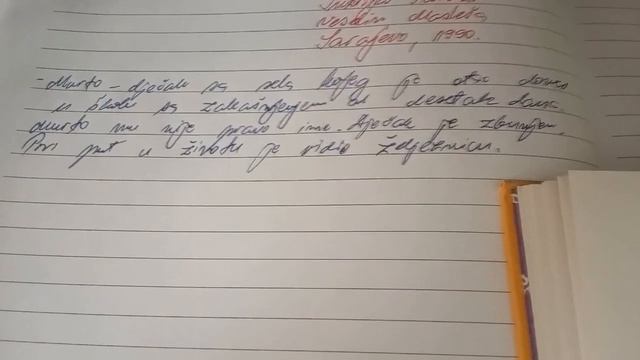 Veselin Masleša
Sarajevo, 1990.
- Murto - dječak sa sela kojeg je otac doveo
u školu sa zakašnjenjem od desetak dana.
Murto mu nije pravo ime. Dječak je zbunjen.
Prvi put u životu je vidio željeznicu.